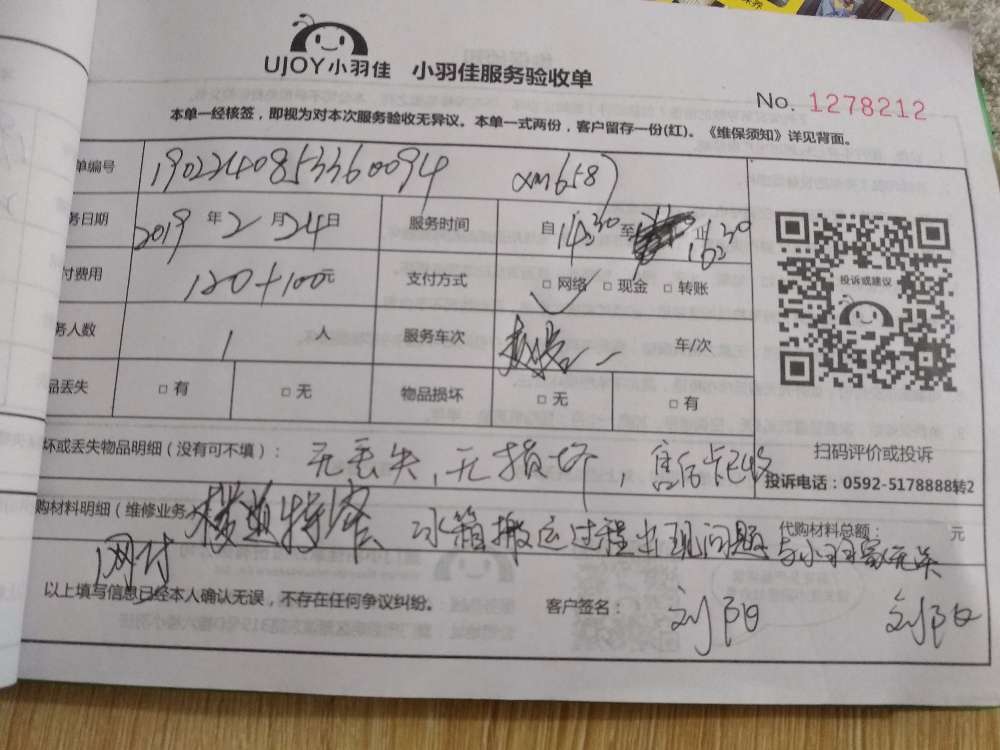 UJOY小羽佳 小羽佳服务验收单
No. 1278212
本单一经核签，即视为对本次服务验收无异议。本单一式两份，客户留存一份(红)。《维保须知》详见背面。
单编号 19022408533360094 xm6587
务日期 2019 年 2 月 24 日 服务时间 自 14:30 至 止 16:30
付费用 120+100元 支付方式 □ 网络 □ 现金 □ 转账
务人数 1 人 服务车次 一 车/次
品丢失 □ 有 □ 无 物品损坏 □ 无 □ 有
投诉或建议
扫码评价或投诉
投诉电话：0592-5178888转2
坏或丢失物品明细（没有可不填）： 无丢失，无损坏，售后卡已收
购材料明细（维修业务） 楼道 冰箱搬运过程出现问题 代购材料总额： 元
与小羽家无关
网付
以上填写信息已经本人确认无误，不存在任何争议纠纷。 客户签名： 刘阳 刘阳